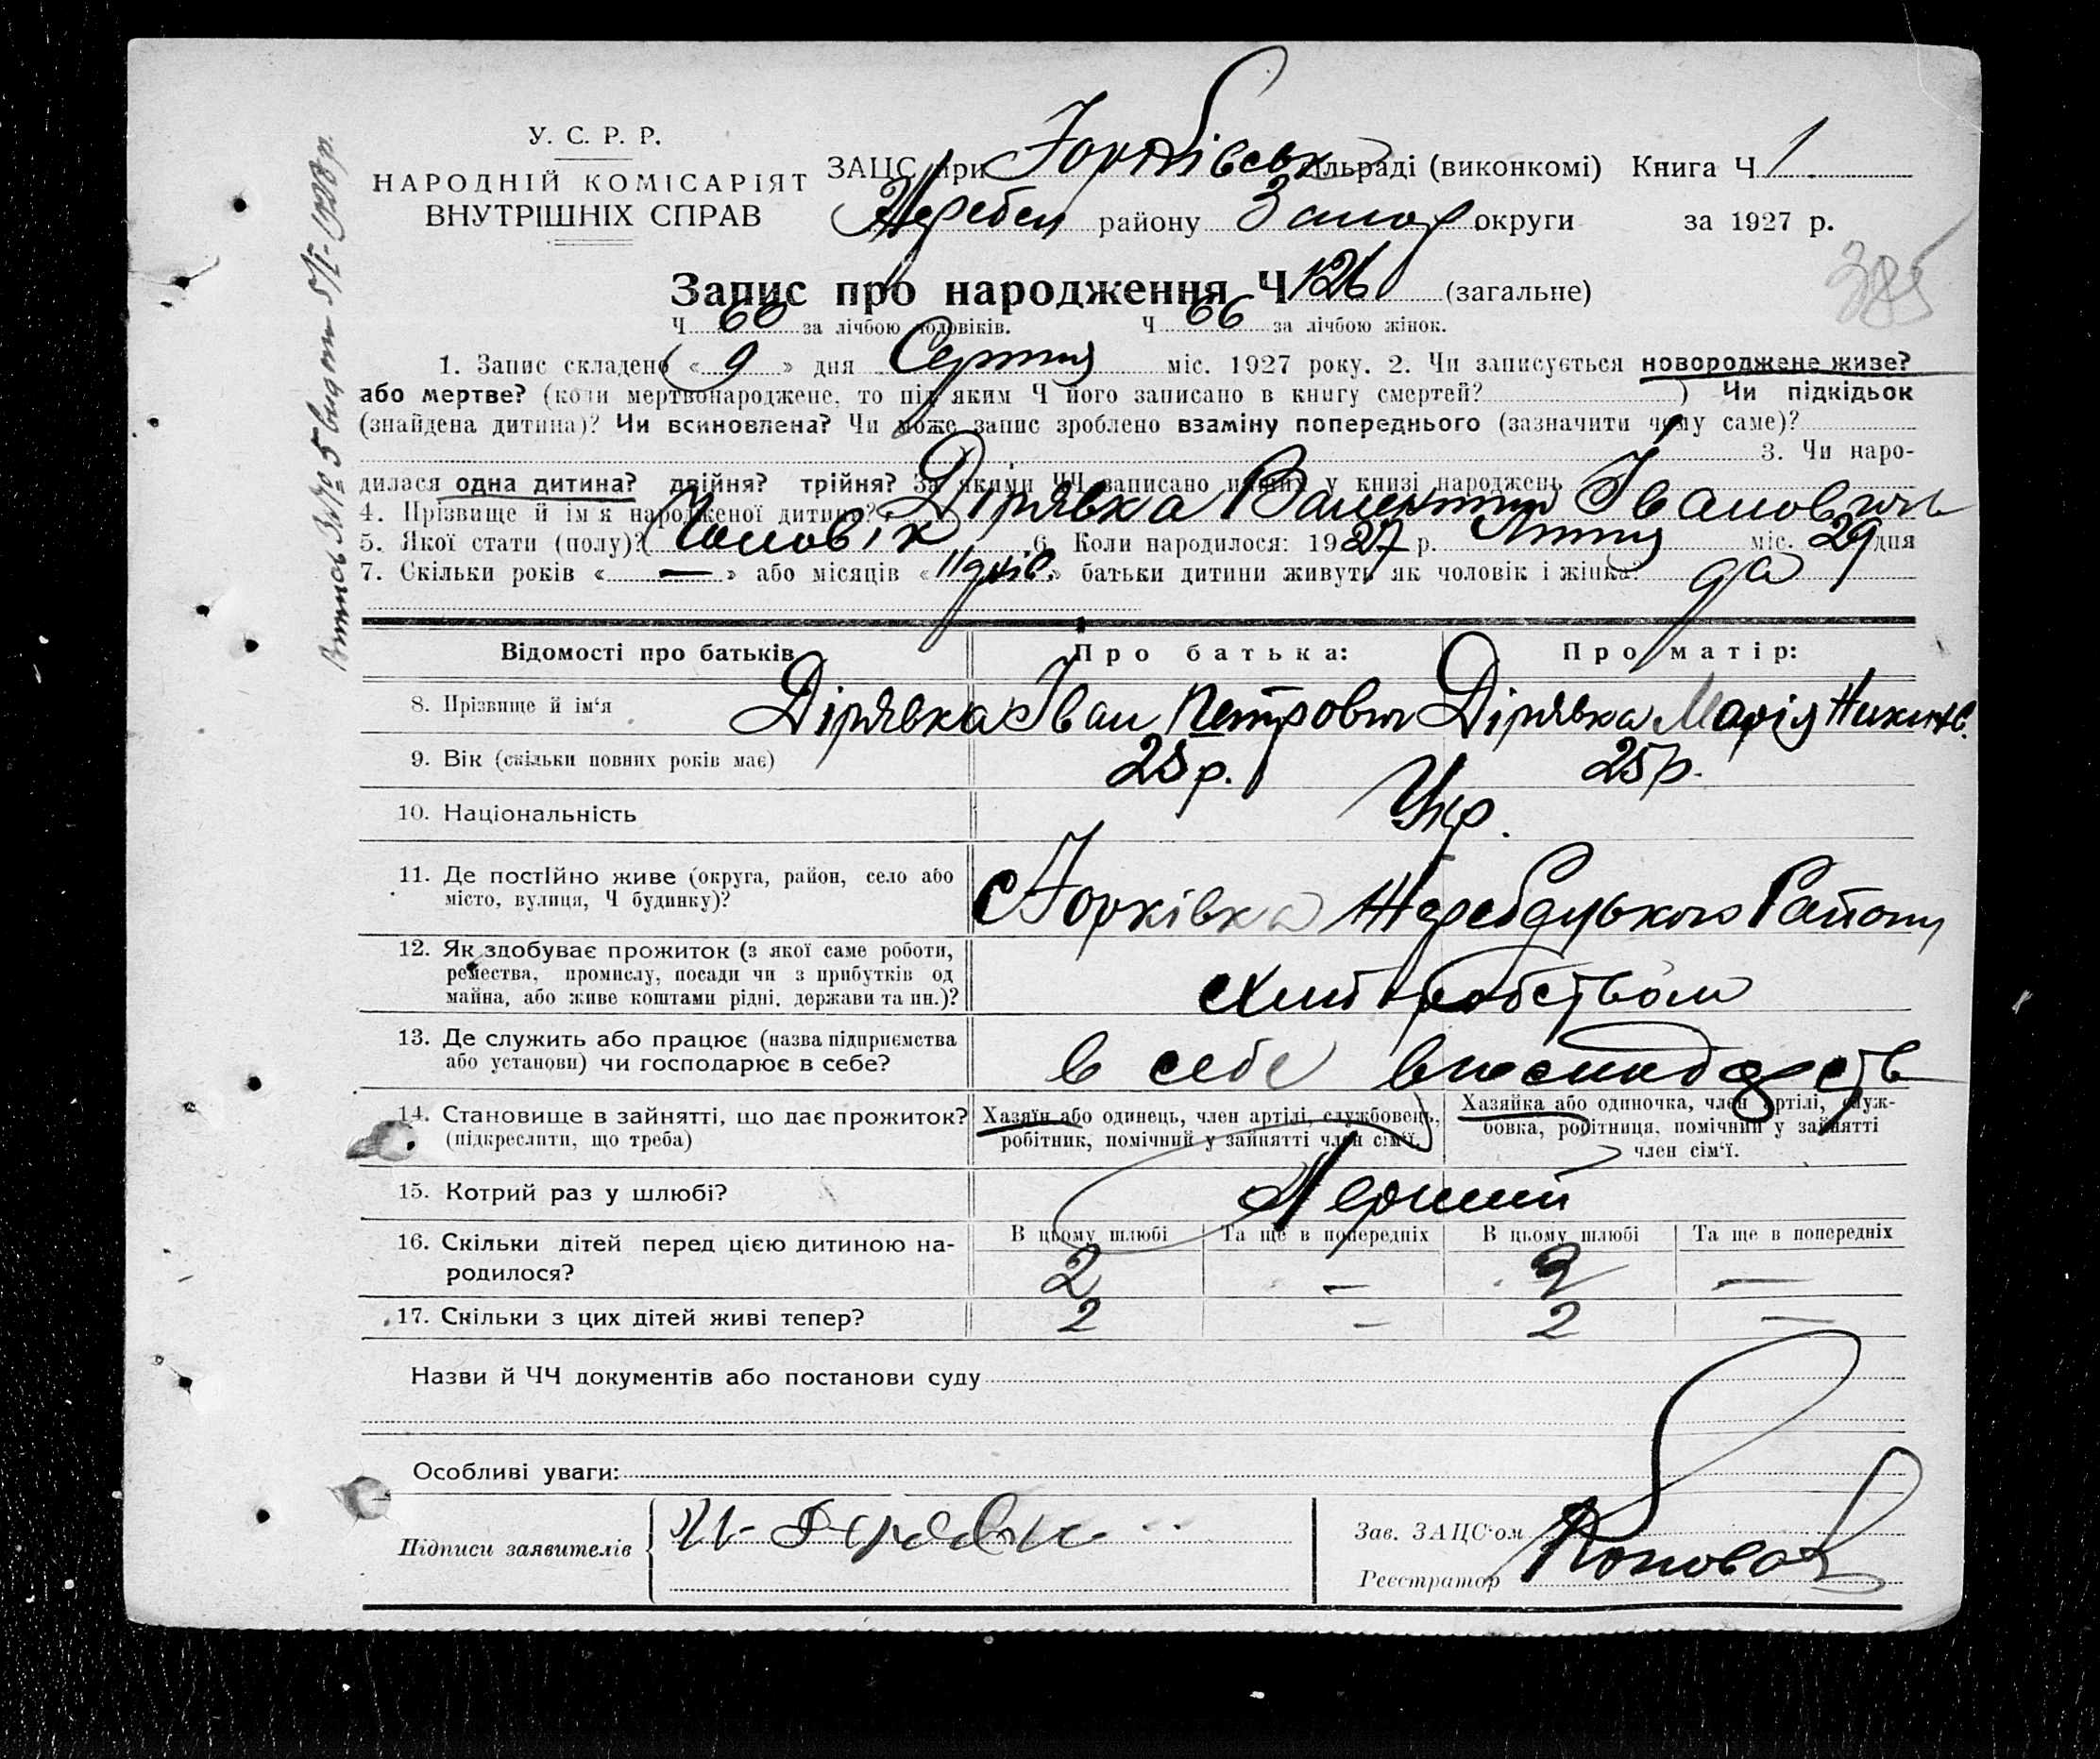 У. С. Р. Р.
НАРОДНІЙ КОМІСАРІЯТ
ВНУТРІШНІХ СПРАВ
ЗАЦС при сільраді (виконкомі) Книга Ч 1
Жеребец району Запор округи за 1927 р.
385
Запис про народження Ч 126 (загальне)
Ч 60 за лічбою чоловіків. Ч 66 за лічбою жінок.
1. Запис складено « 9 » дня Серпня міс. 1927 року. 2. Чи записується новороджене живе?
або мертве? (коли мертвонароджене, то під яким Ч його записано в книгу смертей? ) Чи підкідьок
(знайдена дитина)? Чи всиновлена? Чи може запис зроблено взаміну попереднього (зазначити чому саме)?
3. Чи наро-
дилася одна дитина? двійня? трійня? За якими ЧЧ записано инших у книзі народжень
4. Прізвище й ім'я народженої дитини? Дірявка Валентин Іванович
5. Якої стати (полу)? Чоловік 6. Коли народилося: 1927 р. Липня міс. 29 дня
7. Скільки років « — » або місяців « 11 » батьки дитини живуть як чоловік і жінка? да
Відомості про батьків Про батька: Про матір:
8. Прізвище й ім'я Дірявка Іван Петрович Дірявка Марія Никит
9. Вік (скільки повних років має) 25 р. 25 р.
10. Національність Укр.
11. Де постійно живе (округа, район, село або
місто, вулиця, Ч будинку)?
с Юрківка Жеребецького Району
12. Як здобуває прожиток (з якої саме роботи,
ремества, промислу, посади чи з прибутків од
майна, або живе коштами рідні, держави та ин.)?
хліборобством
13. Де служить або працює (назва підприємства
або установи) чи господарює в себе?
в себе в господарств
14. Становище в зайнятті, що дає прожиток?
(підкреслити, що треба)
Хазяїн або одинець, член артілі, службовець,
робітник, помічний у зайнятті член сім'ї.
Хазяйка або одиночка, член артілі, служ-
бовка, робітниця, помічний у зайнятті
член сім'ї.
15. Котрий раз у шлюбі? Перший
16. Скільки дітей перед цією дитиною на-
родилося?
В цьому шлюбі Та ще в попередніх В цьому шлюбі Та ще в попередніх
2 — 2 —
17. Скільки з цих дітей живі тепер? 2 — 2 —
Назви й ЧЧ документів або постанови суду
Особливі уваги:
Підписи заявителів
Зав. ЗАЦС'ом
Реєстратор